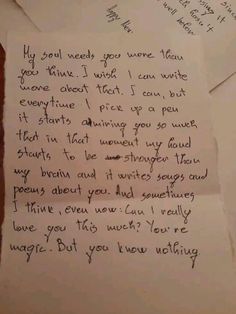 well below
My soul needs you more than
you think. I wish I can write
more about that. I can, but
everytime I pick up a pen
it starts admiring you so much
that in that moment my hand
starts to be stronger than
my brain and it writes songs and
poems about you. And sometimes
I think, even now: Can I really
love you this much? You're
magic. But you know nothing